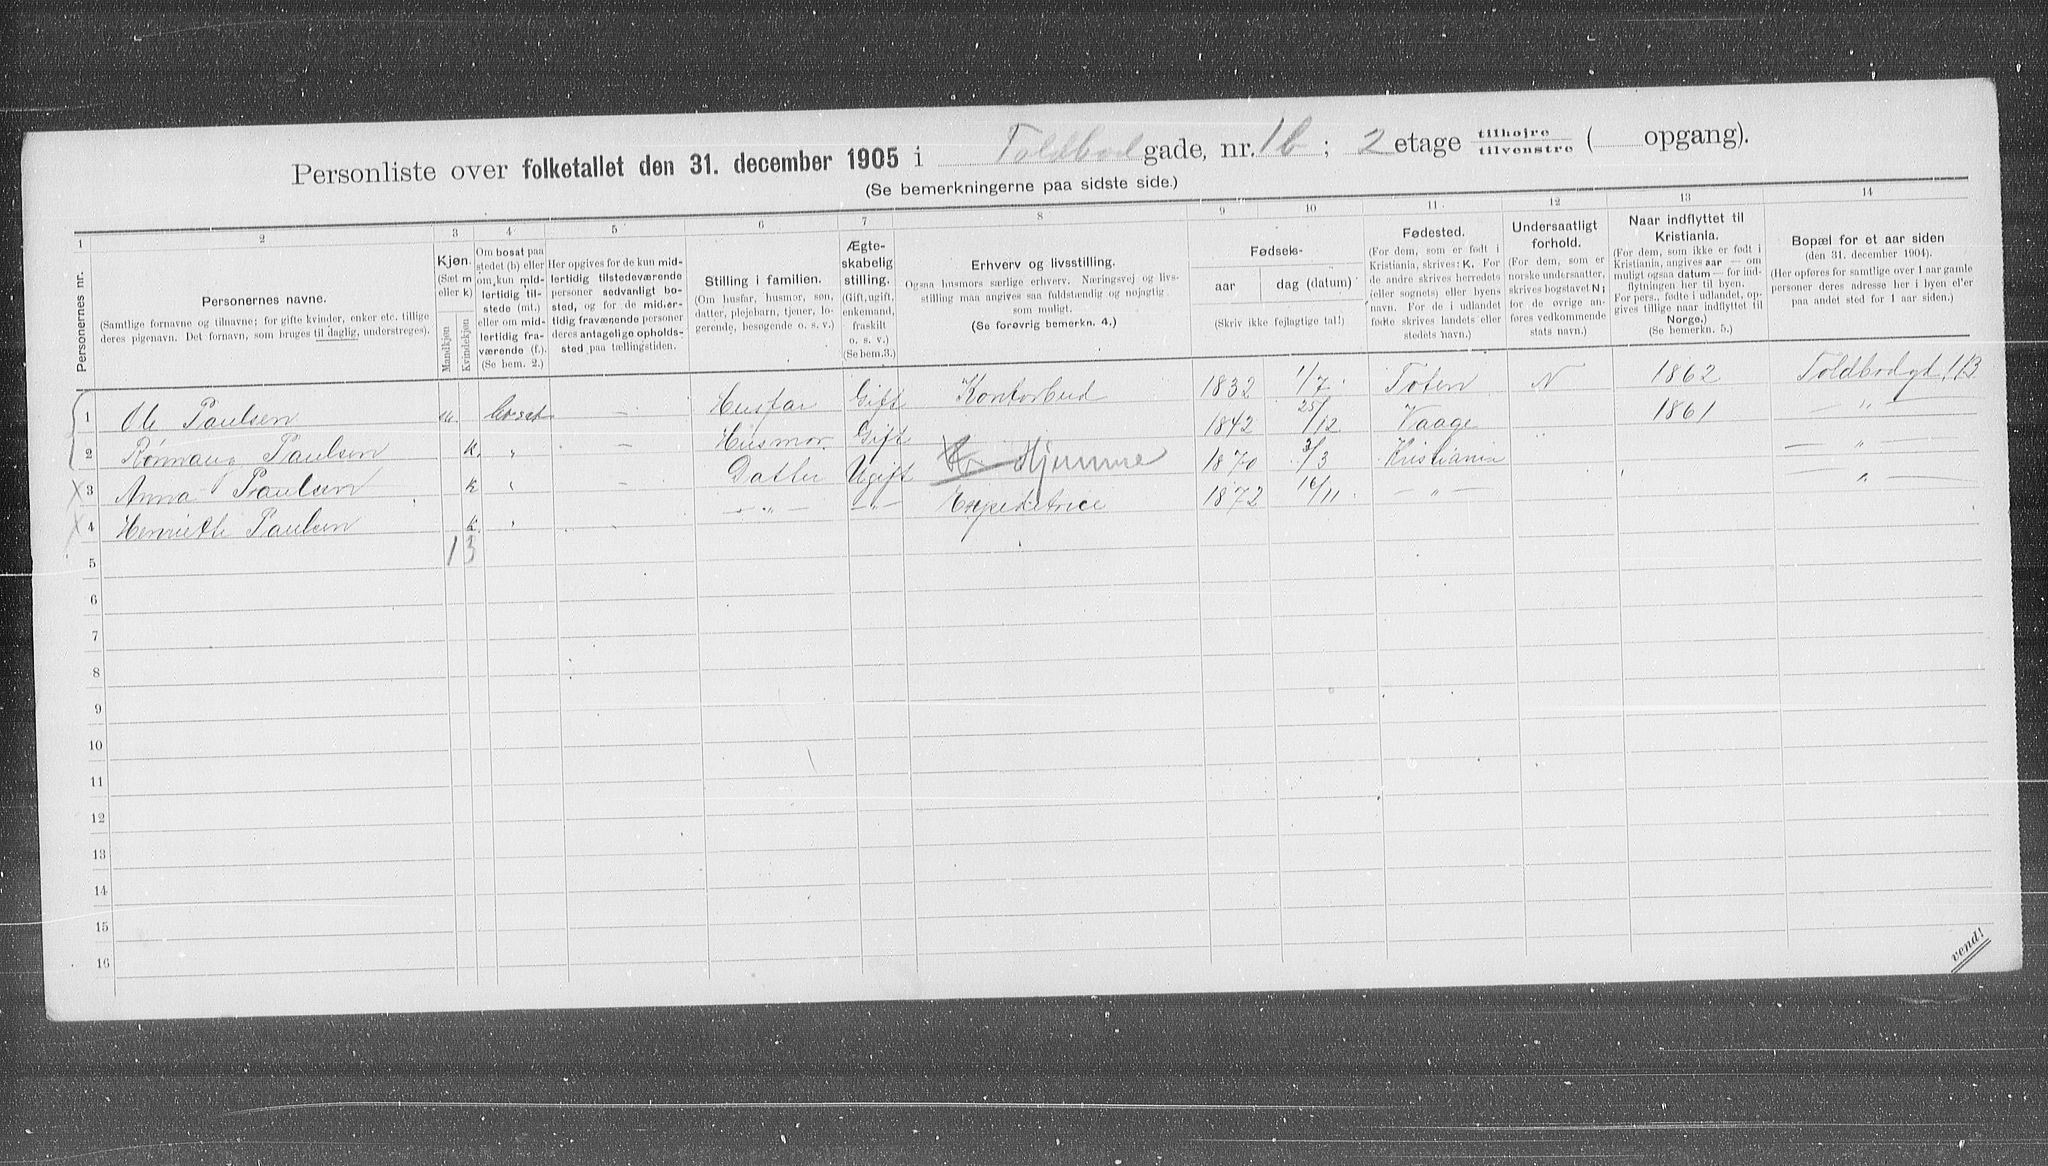 Personliste over folketallet den 31. december 1905 i Toldbodgade, nr. 1b; 2 etage tilhøjre tilvenstre ( opgang).
(Se bemerkningerne paa sidste side.)
1 2 3 4 5 6 7 8 9 10 11. 12 13 14
Personernes nr.
Personernes navne.
(Samtlige fornavne og tilnavne; for gifte kvinder, enker etc. tillige
deres pigenavn. Det fornavn, som bruges til daglig, understreges).
Kjøn.
(Sæt m
eller k)
Mandkjøn
Kvindekjøn
Om bosat paa
stedet (b) eller
om kun mid-
lertidig til-
stede (mt.)
eller om mid-
lertidig fra-
værende (f.)
(Se bem. 2.)
Her opgives for de kun mid-
lertidig tilstedeværende
personer sedvanligt bo-
sted, og for de midler-
tidig fraværende personer
deres antagelige opholds-
sted paa tællingstiden.
Stilling i familien.
(Om husfar, husmor, søn,
datter, plejebarn, tjener, lo-
gerende, besøgende o. s. v.)
Ægte-
skabelig
stilling.
(Gift, ugift,
enkemand,
fraskilt
o. s. v.)
(Se bem. 3.)
Erhverv og livsstilling.
Ogsaa husmors særlige erhverv. Næringsvej og livs-
stilling maa angives saa fuldstændig og nøjagtig
som muligt.
(Se forøvrig bemerkn. 4.)
Fødsels-
aar
dag (datum)
(Skriv ikke fejlagtige tal!)
Fødested.
(For dem, som er født i
Kristiania, skrives: K. For
de andre skrives herredets
(eller sognets) eller byens
navn. For de i udlandet
fødte skrives landets eller
stedets navn.)
Undersaatligt
forhold.
(For dem, som er
norske undersaatter,
skrives bogstavet N;
for de øvrige an-
føres vedkommende
stats navn.)
Naar indflyttet til
Kristiania.
(For dem, som ikke er født i
Kristiania, angives aar — om
muligt ogsaa datum — for ind-
flytningen her til byen.
For pers., fødte i udlandet, op-
gives tillige naar indflyttet til
Norge.)
(Se bemerkn. 5.)
Bopæl for et aar siden
(den 31. december 1904).
(Her opføres for samtlige over 1 aar gamle
personer deres adresse her i byen el'er
paa andet sted for 1 aar siden.)
1 Ole Paulsen m bosat – Husfar Gift Kontorbud 1832 1/7 Toten N 1862 Toldbodgt 1B
2 Rønnaug Paulsen k. " – Husmor Gift 1842 25/12 Vaage " 1861 – " –
3 Anna Paulsen k " – Datter Ugift Hjemme 1870 3/3 Kristiania – " –
4 Henriette Paulsen k " – " – – " – Expeditrice 1872 16/11 – " – – " –
1 3
5
6
7
8
9
10
11
12
13
14
15
16
vend!